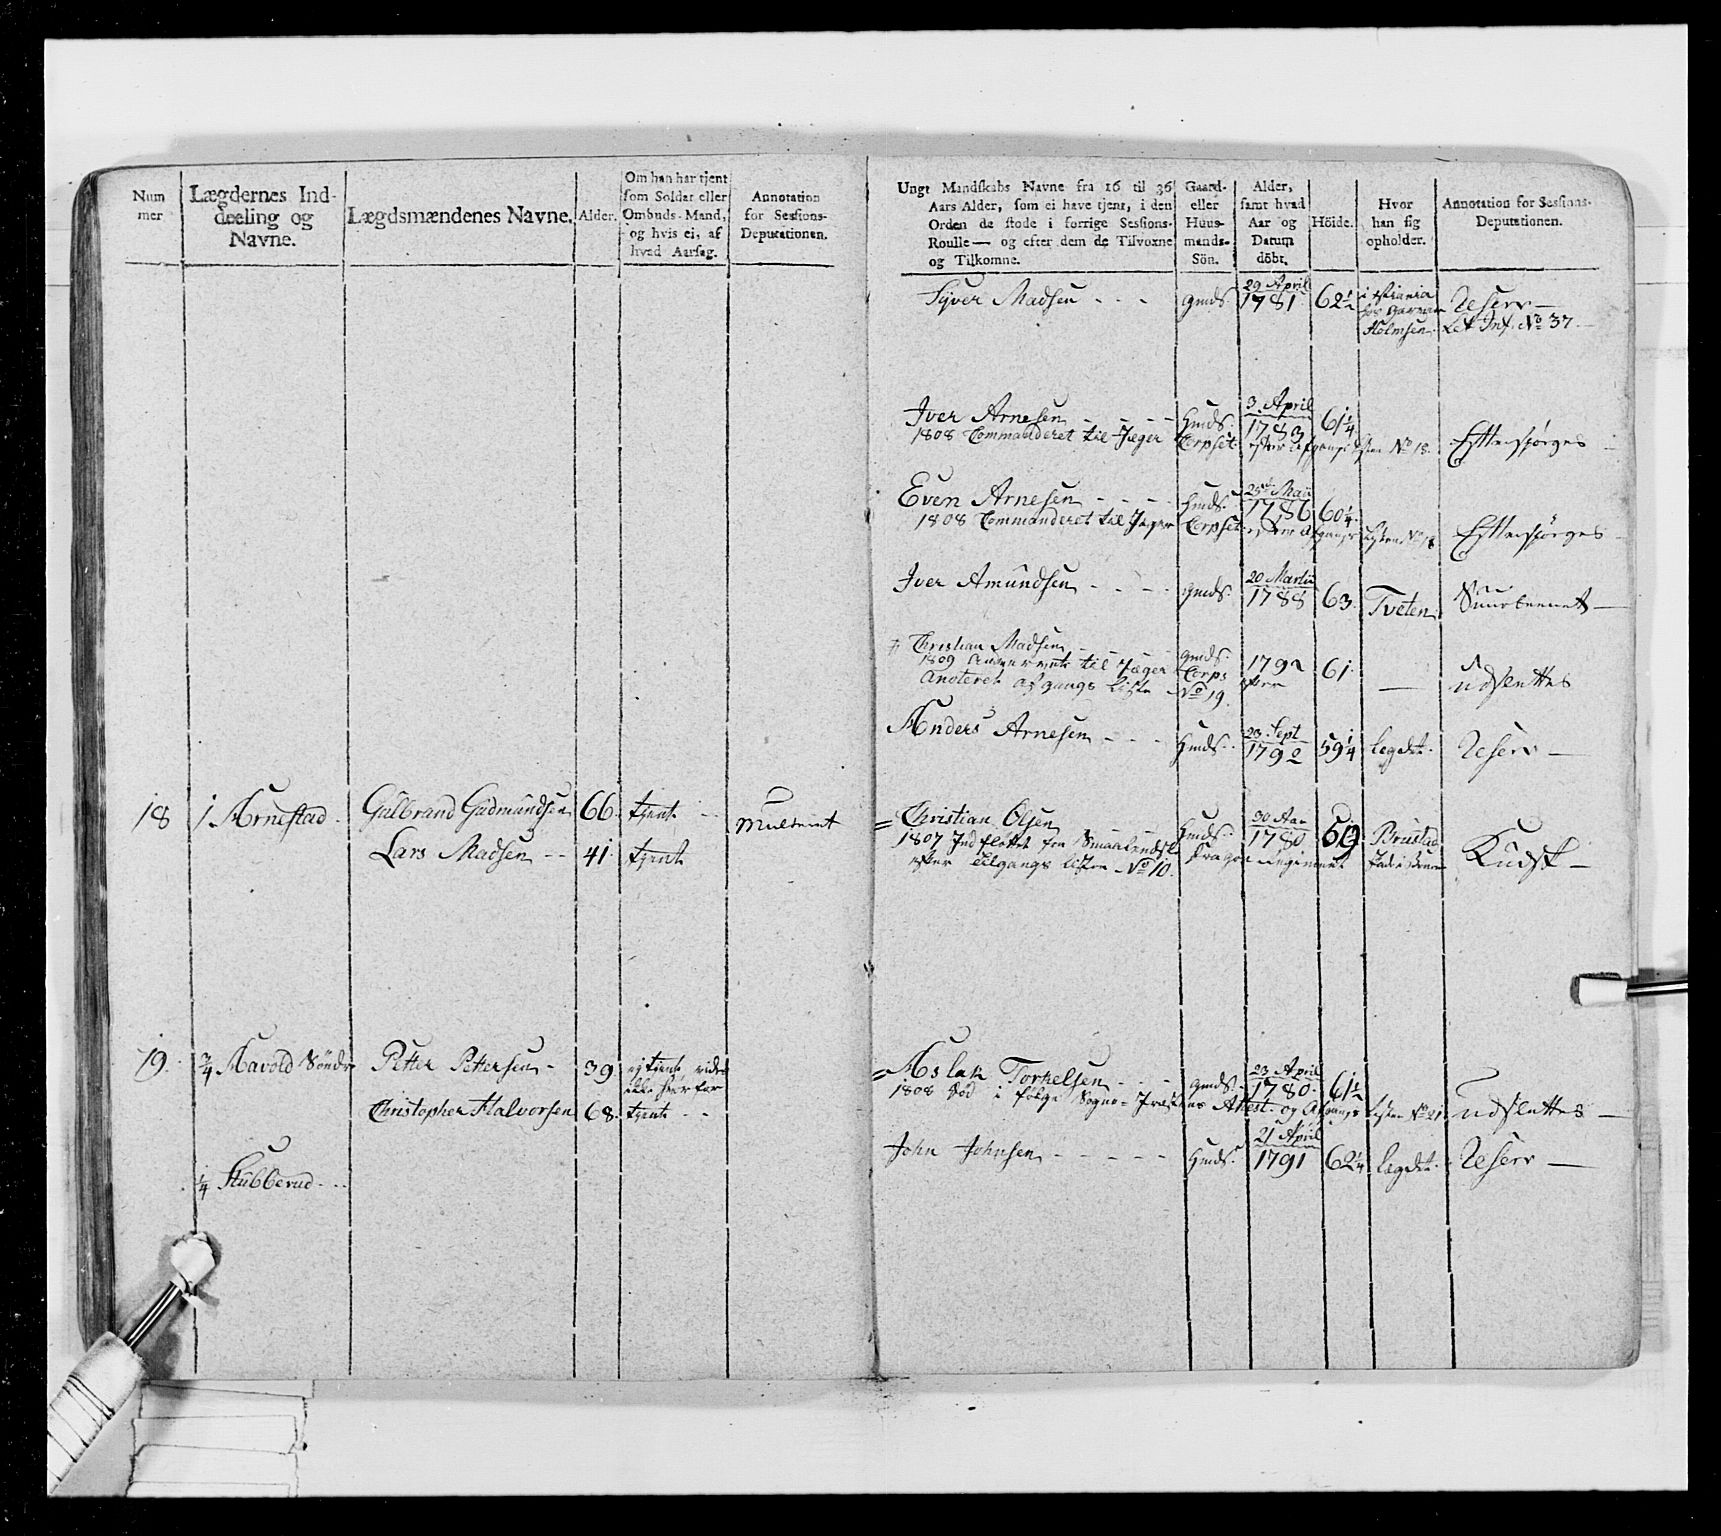 Num
mer
Lægdernes Ind-
deeling og
Navne.
Lægdsmændenes Navne.
Alder.
Om han har tjent
som Soldat eller
Ombuds-Mand,
og hvis ei, af
hvad Aarsag.
Annotation
for Sessions-
Deputationen.
18
1 Arnestad
Gulbrand Gudmundsen
66.
tjent
Lars Madsen
41.
tjent
19.
3/4 Havold Søndr
Petter Pettersen
39
ej tjent
Christopher Halvorsen
68.
tjent
1/4 Stubberud
Ungt Mandskabs Navne fra 16 til 36
Aars Alder, som ei have tjent, i den
Orden de stode i forrige Sessions-
Roulle — og efter dem de Tilvoxne
og Tilkomne.
Gaard-
eller
Huus-
mands-
Sön.
Alder,
samt hvad
Aar og
Datum
döbt.
Höide.
Hvor
han sig
opholder.
Annotation for Sessions-
Deputationen.
Syver Madsen - - -
gmds
29 April
1781
62½
Holmsen
Reserv —
Let Inf. No 37.
Iver Arnesen - - - -
Hmds.
3. April
1783
61¼
1808 Commanderet til Jæger Corpset efter Afgangs Listen No 18.
Efterspørges
Even Arnesen - - - -
Hmds.
25de Maii
1786
60¼
1808 Commanderet til Jæger Corpset efter Afgangs Listen No 18
Efterspørges
Iver Amundsen - - - -
gmds.
20 Martii
1788
63.
Tveten
Christian Madsen
gmds.
1792
61.
—
udslettes
1809 til Jæger Corps efter
Anoteret afgangs Liste No 19.
Anders Arnesen - - -
Hmds.
23. Sept
1792
59¼
legdet.
Reserv —
= Christian Olsen
Hmds.
1780
Brustad
Kudsk —
1807 Indfløttet fra Smaalendske Dragon Regiment
efter Tilgangs Listen No 10.
= Aslak Torkelsen - - -
gmds.
23 April
1780.
61½
1808 død i følge Sogne-Præstens Attest og Afgangs Listen No 21.
udslettes —
John Johnsen - - - - -
Hmds.
21 April
1791
62¼
legdet.
Reserv —